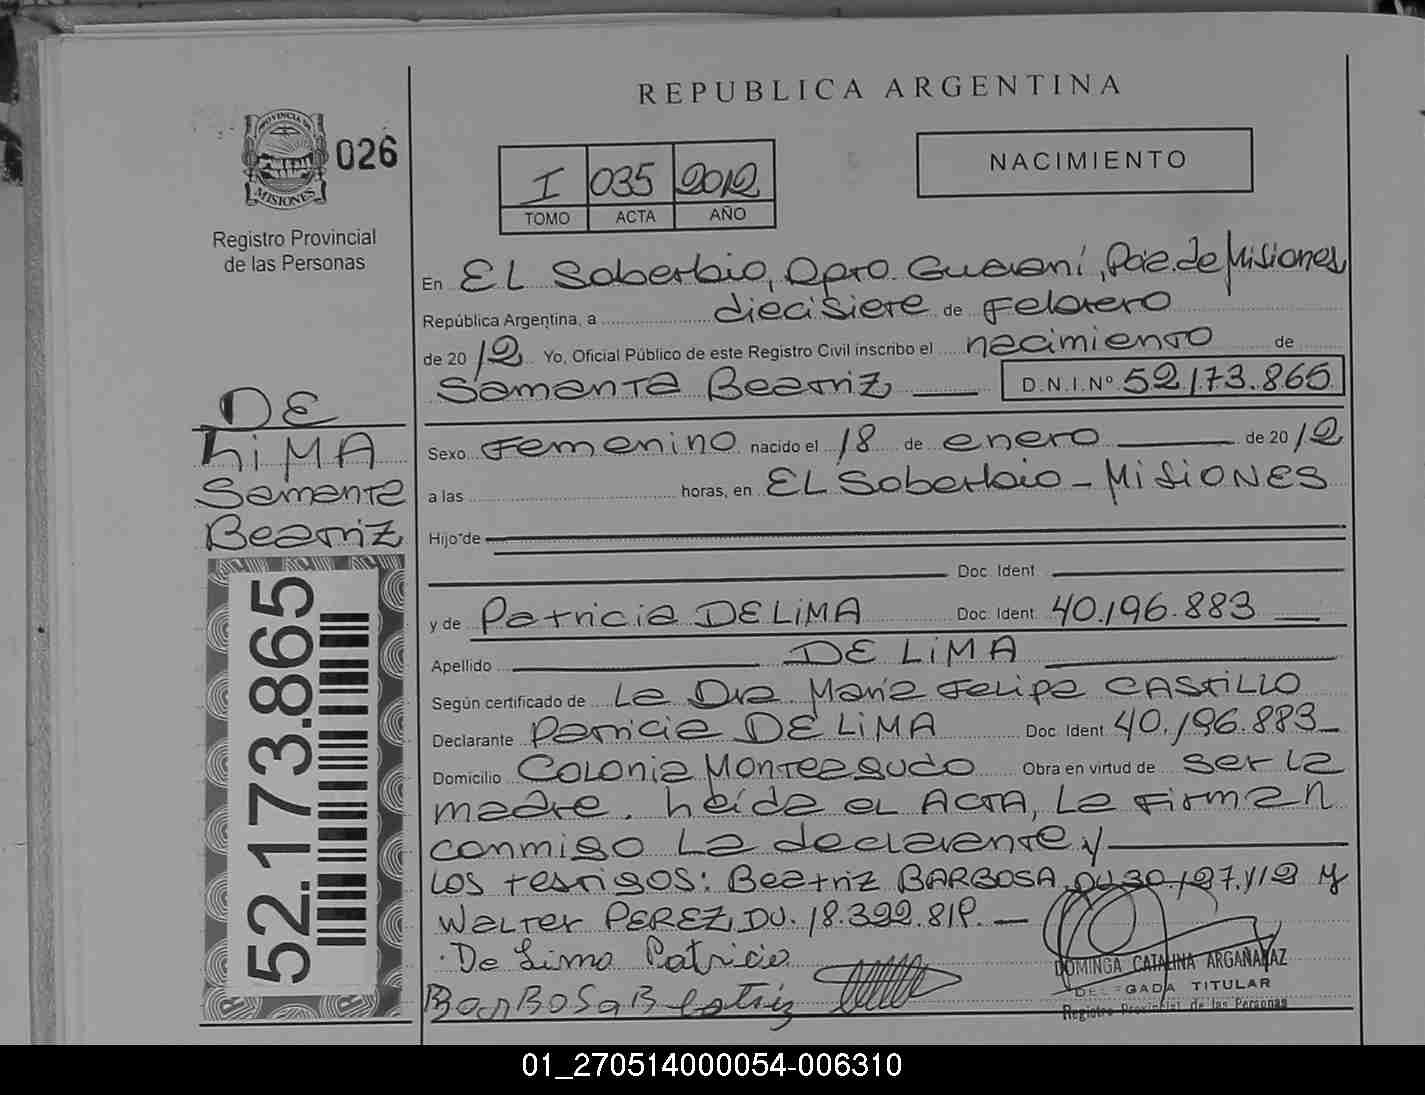 REPUBLICA ARGENTINA
PROVINCIA DE
MISIONES
026
Registro Provincial
de las Personas
I 035 2012
TOMO ACTA AÑO
NACIMIENTO
En EL Soberbio, Dpto. Guaraní, Pcia. de Misiones
República Argentina, a diecisiete de Febrero
de 2012 Yo, Oficial Público de este Registro Civil inscribo el nacimiento de
Samanta Beatriz D.N.I.Nº 52.173.865
DE
LiMA
Samanta
Beatriz
52.173.865
Sexo Femenino nacido el 18 de enero de 2012
a las horas, en EL Soberbio - MiSiONES
Hijo de
Doc. Ident.
y de Patricia DE LiMA Doc. Ident. 40.196.883
Apellido DE LiMA
Según certificado de La Dra María Felipa CASTILLO
Declarante Patricia DE LiMA Doc. Ident 40.196.883
Domicilio Colonia Monteagudo Obra en virtud de ser la
madre. heída el ACTA, La Firman
conmigo La declarante y
Los testigos: Beatriz BARBOSA, DU 30.127.112 y
Walter PEREZ, DU. 18.392.819.
De Lima Patricia
BarBosa Beatriz
DOMINGA CATALINA ARGAÑARAZ
DELEGADA TITULAR
Registro Provincial de las Personas
01_270514000054-006310